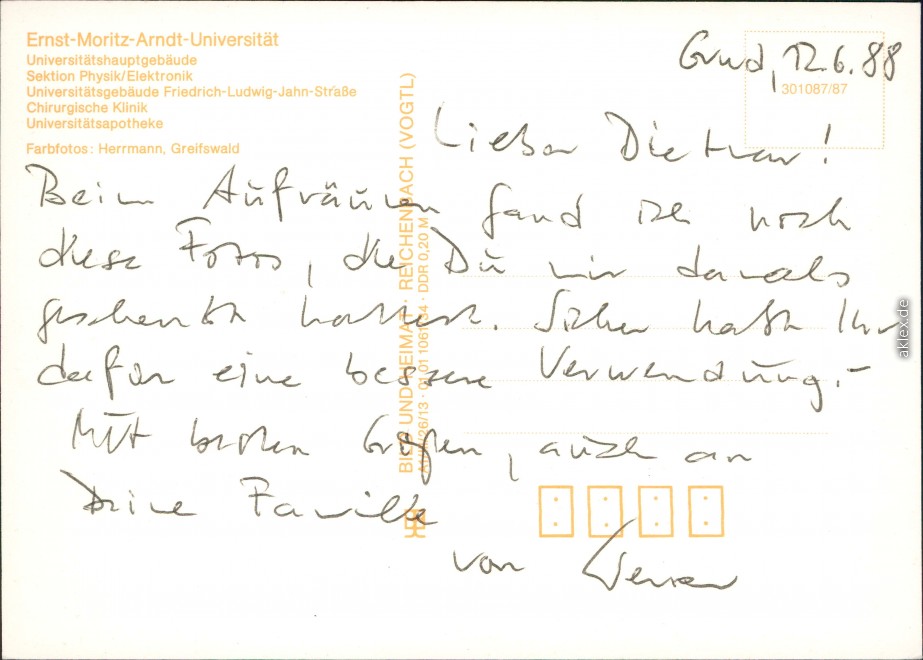 Ernst-Moritz-Arndt-Universität
Universitätshauptgebäude
Sektion Physik/Elektronik
Universitätsgebäude Friedrich-Ludwig-Jahn-Straße
Chirurgische Klinik
Universitätsapotheke
Farbfotos: Herrmann, Greifswald
301087/87
BILD UND HEIMAT · REICHENBACH (VOGTL)
DDR 0,20 M
Grund, 12.6.88
Lieber Dietmar!
Beim Aufräumen fand ich noch
diese Fotos, die Du mir damals
geschenkt hattest. Sicher habt Ihr
dafür eine bessere Verwendung.-
Mit besten Grüßen, auch an
Deine Familie
von Werner
aklex.de